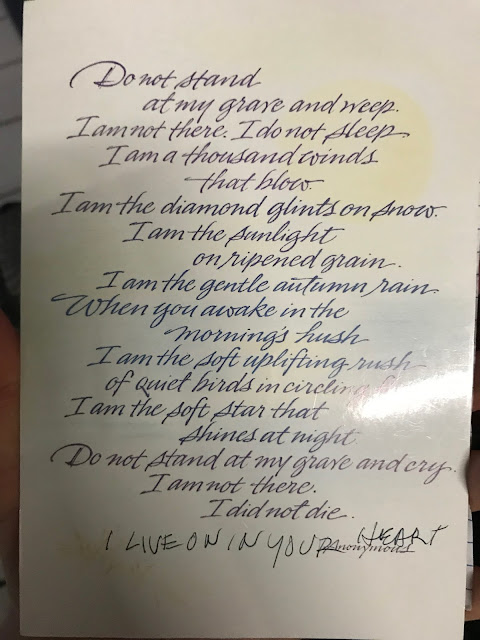 Do not stand
at my grave and weep.
I am not there. I do not sleep.
I am a thousand winds
that blow.
I am the diamond glints on snow.
I am the sunlight
on ripened grain.
I am the gentle autumn rain.
When you awake in the
morning's hush
I am the soft uplifting rush
of quiet birds in circling
I am the soft star that
shines at night.
Do not stand at my grave and cry.
I am not there.
I did not die.
Anonymous
I LIVE ON IN YOUR HEART